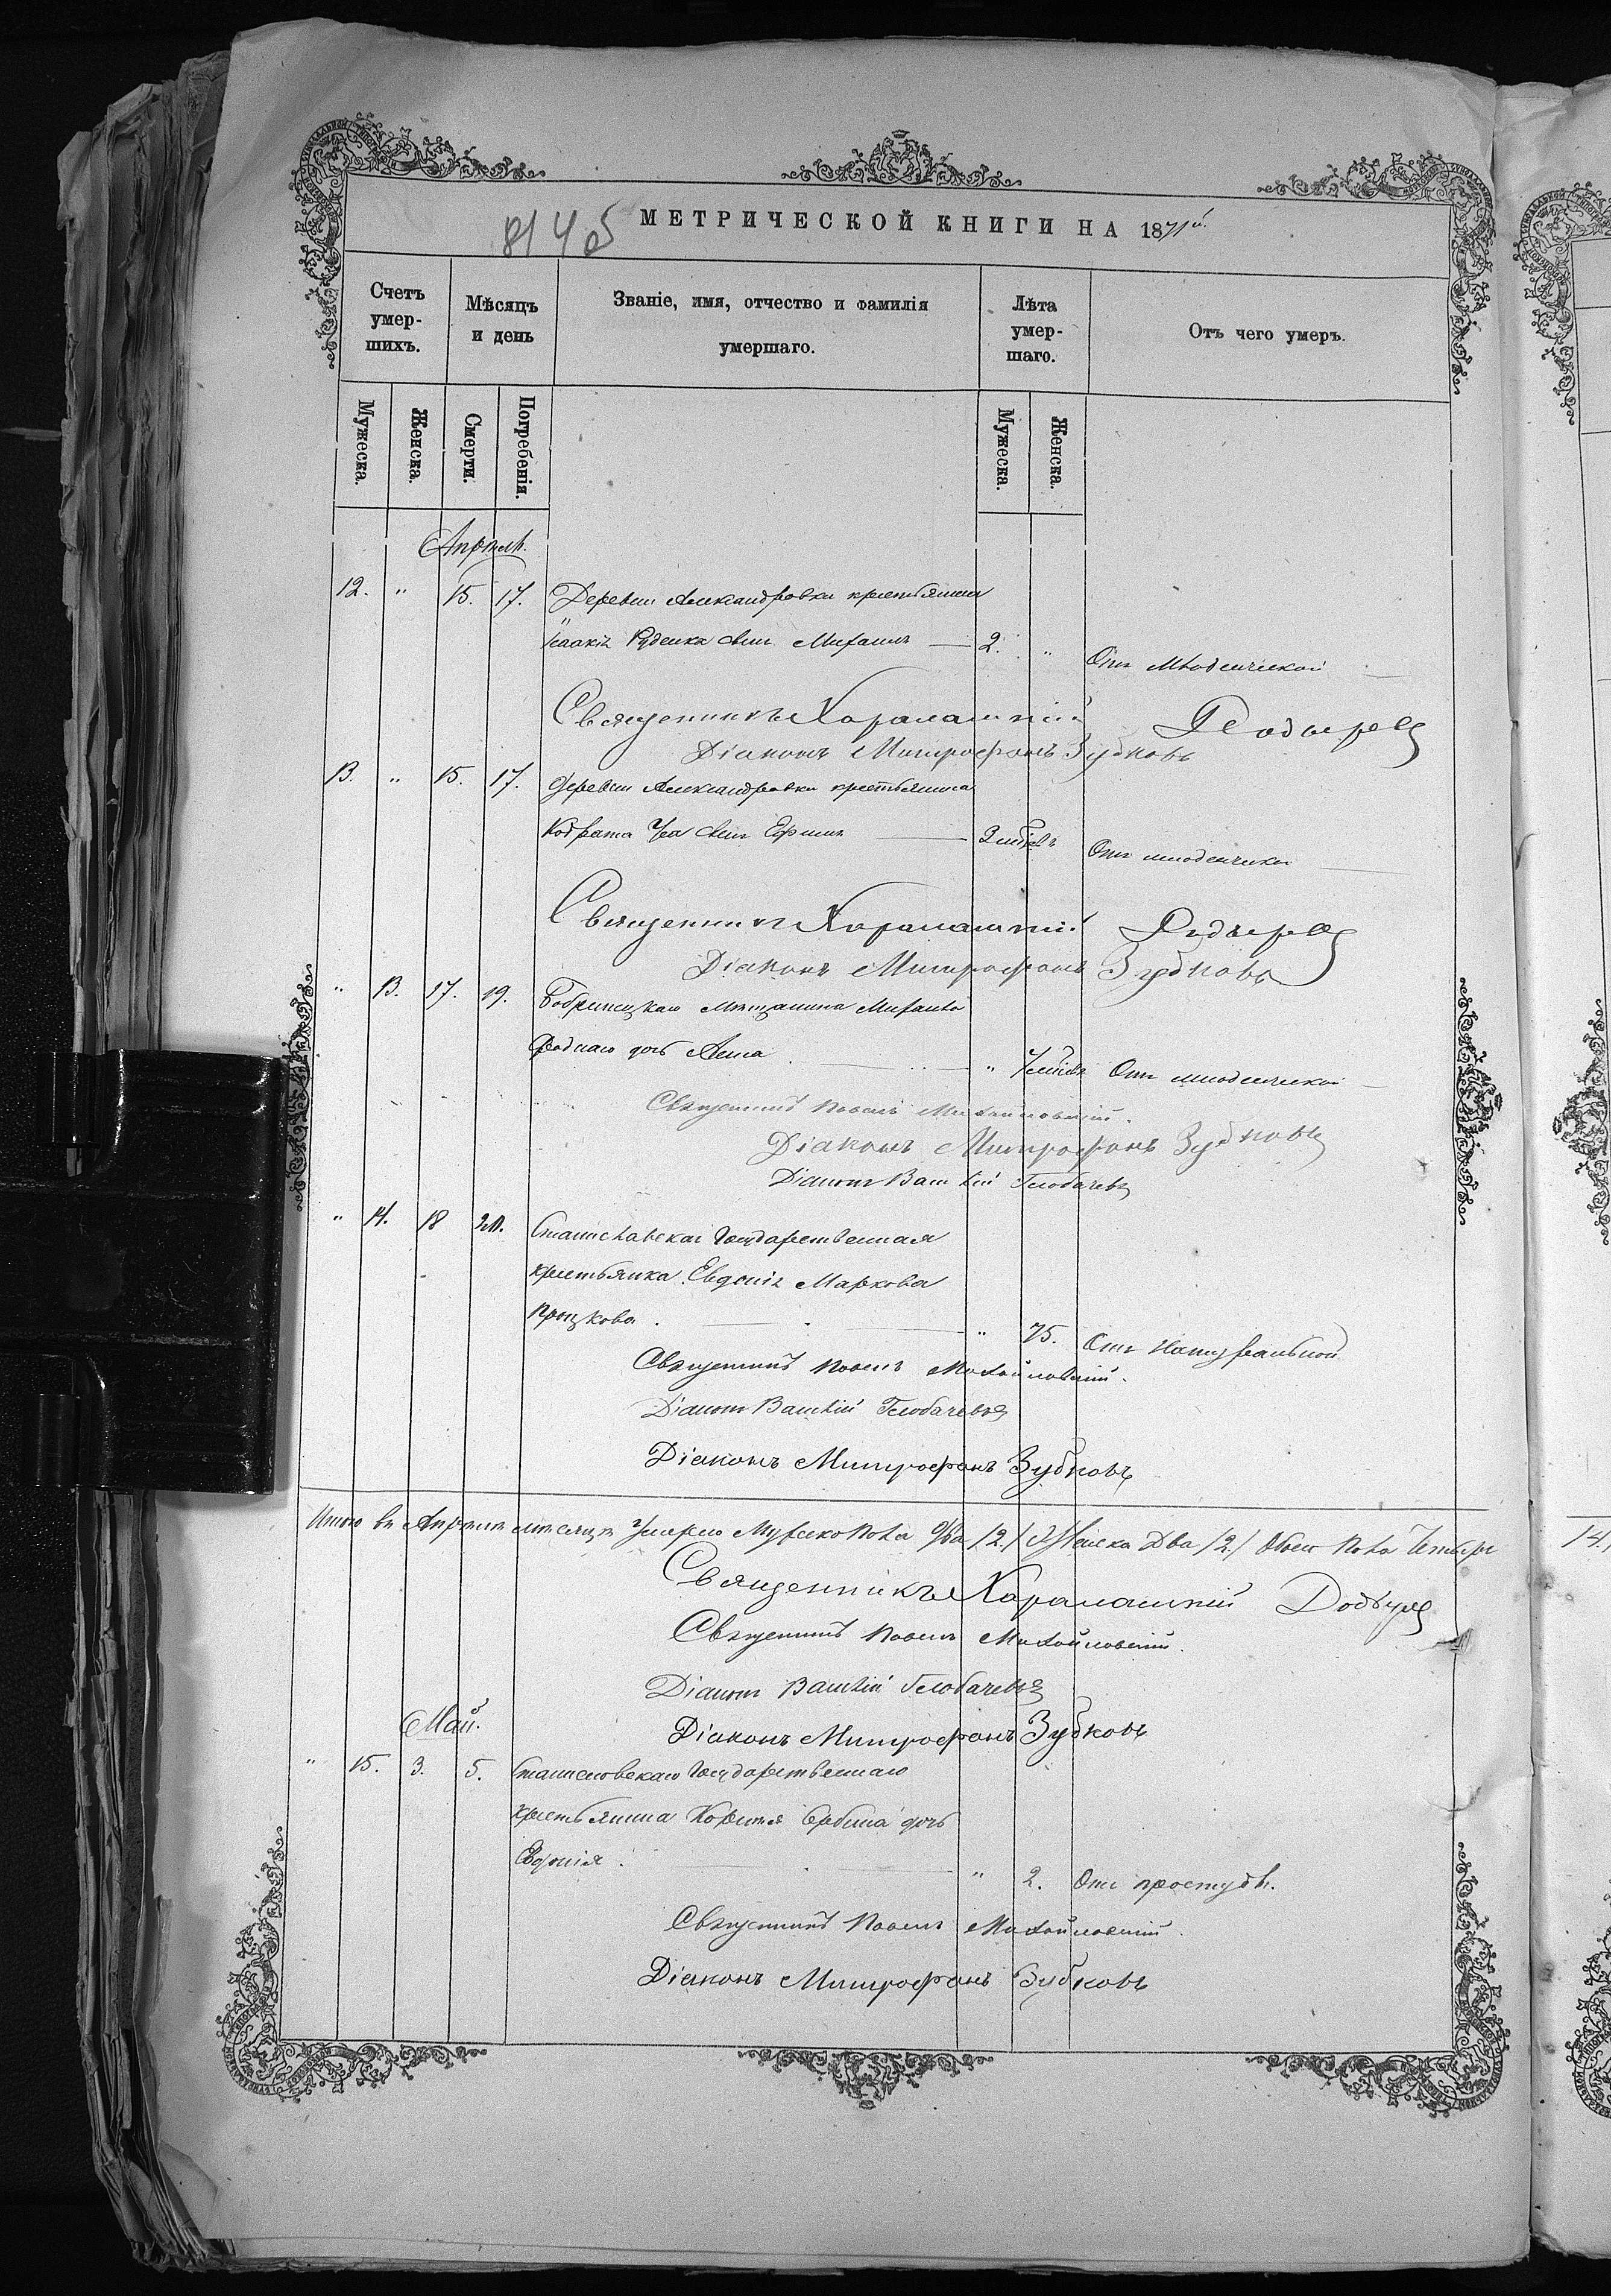 МЕТРИЧЕСКОЙ КНИГИ НА 1871й.
Счетъ умер-шихъ.
Мѣсяцъ и день
Званіе, имя, отчество и фамилія умершаго.
Лѣта умер-шаго.
Отъ чего умеръ.
Мужеска. Женска. Смерти. Погребенія. Мужеска. Женска.
Апрѣль.
12. " 15. 17. Деревни Александровки крестьянина
Руденка сынъ Михаилъ — 2. " Отъ младенческой
Священникъ Харалампій
Діаконъ Митрофанъ Зубковъ
13. " 15. 17. Деревни Александровки крестьянина
Кодрата сынъ Ефимъ — Отъ младенческой
Священникъ Харалампій
Діаконъ Митрофанъ Зубковъ
" 13. 17. 19. Бобринецкаго Мѣщанина Михаила
дочь Анна — " Отъ младенческой
Священникъ Павелъ Михайловскій.
Діаконъ Митрофанъ Зубковъ
Діаконъ Василій Глобачевъ
" 14. 18 20. Станиславская Государственная
крестьянка Евдокія Маркова
Процкова. — " 75. Отъ Натуральной
Священникъ Павелъ Михайловскій.
Діаконъ Василій Глобачевъ
Діаконъ Митрофанъ Зубковъ
Итого въ Апрѣлѣ мѣсяцѣ Умерло Мужеско пола два /2./ Женска Два /2./ Обоего пола Четыре
Священникъ Харалампій
Священникъ Павелъ Михайловскій.
Діаконъ Василій Глобачевъ
Май.
Діаконъ Митрофанъ Зубковъ
" 15. 3. 5. Станиславскаго Государственнаго
крестьянина дочь
Евдокія. — " 2. Отъ простуды.
Священникъ Павелъ Михайловскій.
Діаконъ Митрофанъ Зубковъ